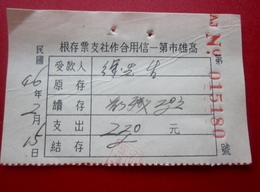 高雄市第一信用合作社支票存根
第 No. 015180 號
民國46年2月15日
受款人
原存
續存
支出 220 元
結存